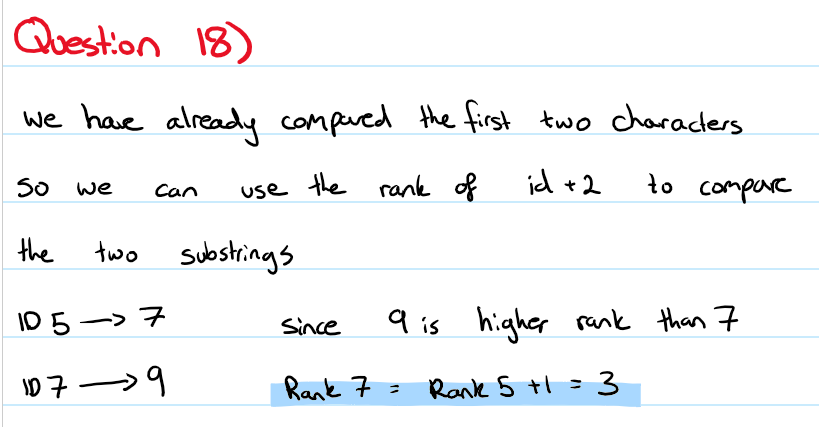 Question 18)
we have already compared the first two characters
so we can use the rank of id + 2 to compare
the two substrings
ID 5 → 7 since 9 is higher rank than 7
ID 7 → 9 Rank 7 = Rank 5 + 1 = 3